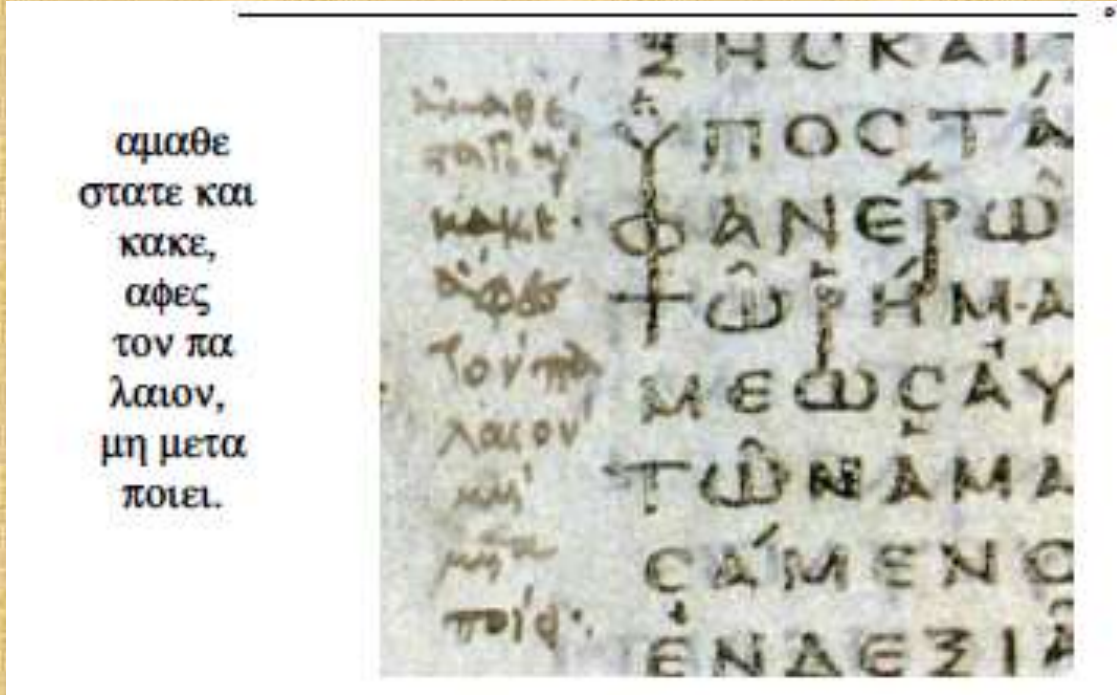 αμαθε
στατε και
κακε,
αφες
τον πα
λαιον,
μη μετα
ποιει.
ἀμαθέ
κακέ·
ἄφες
τὸν πα
λαιὸν
μὴ
ποίει·
ΞΗϹΚΑΙ
ΥΠΟϹΤΑ
ΦΑΝΕΡΩ
ΤΩΡΗΜΑ
ΜΕΩϹΑΥ
ΤΩΝΑΜΑ
ϹΑΜΕΝΟ
ΕΝΔΕΞΙΑ